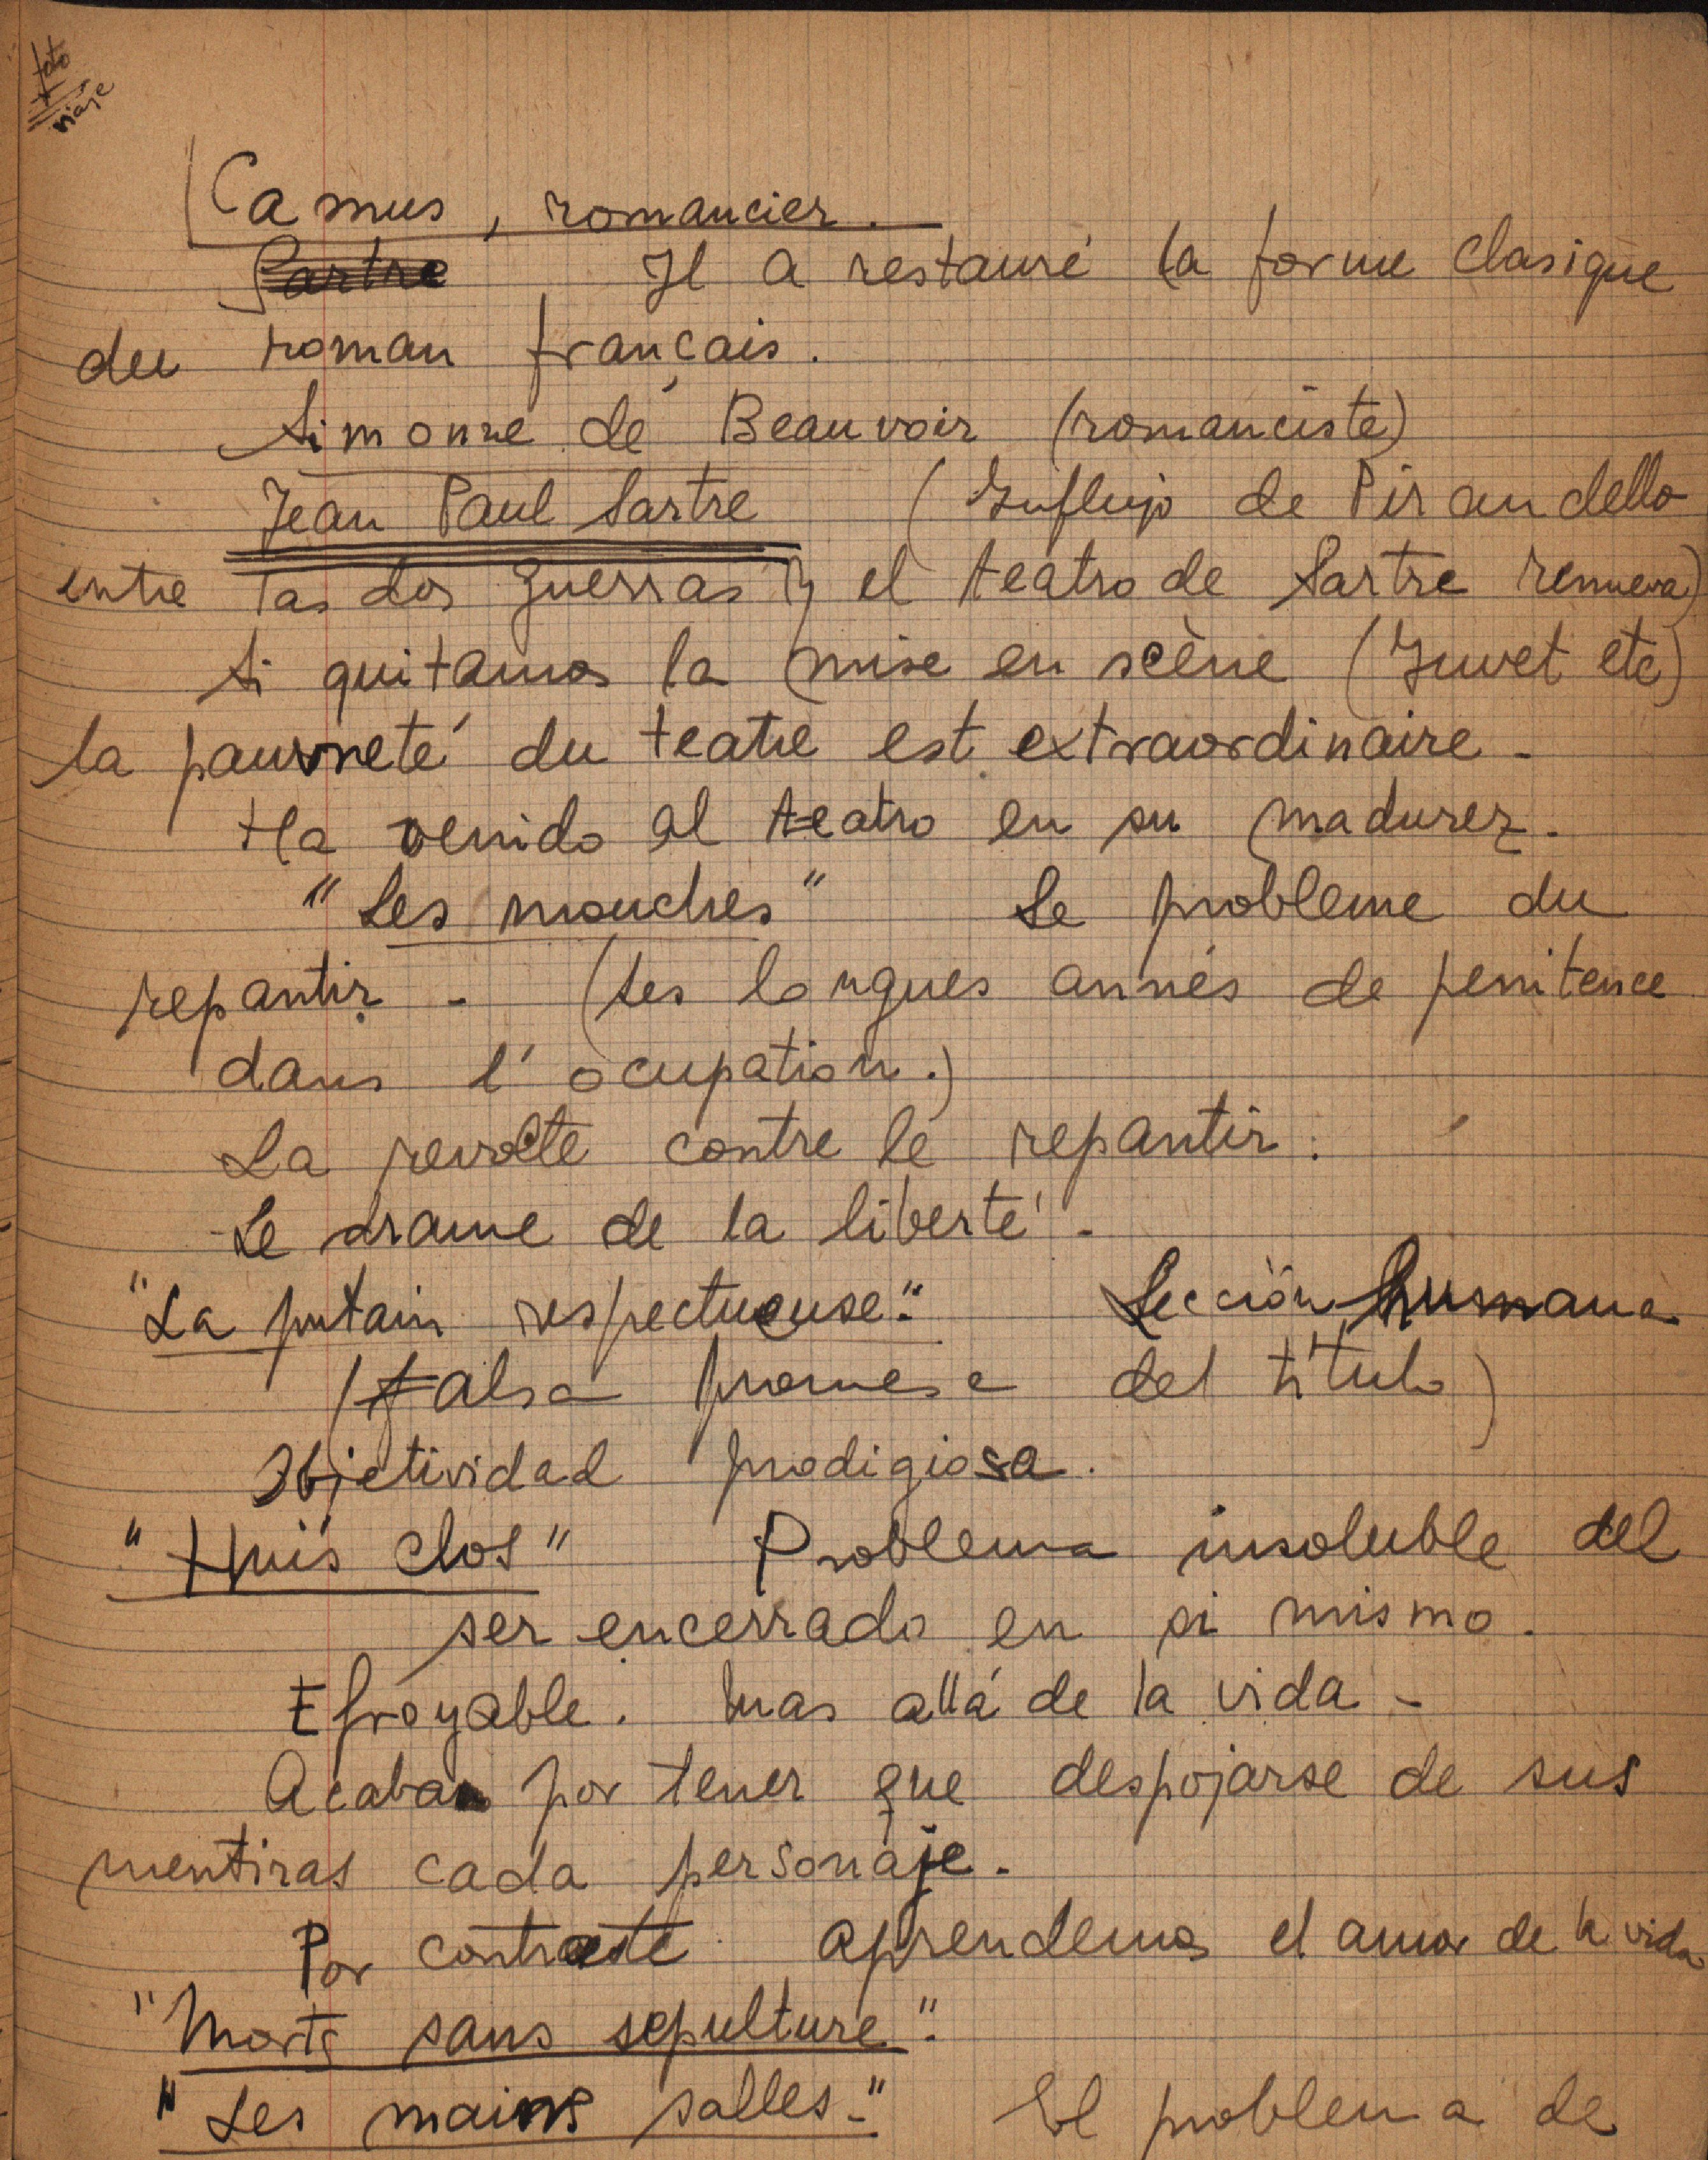 foto
viaje
Camus, romancier.
Sartre Il a restauré la forme clasique
du roman français.
Simonne de Beauvoir (romanciste)
Jean Paul Sartre (Influjo de Pirandello
entre las dos guerras y el teatro de Sartre renueva)
Si quitamos la mise en scène (Juvet etc)
la pauvreté du teatre est extraordinaire -
Ha venido al teatro en su madurez -
"Les mouches" Le probleme du
repantir - (Les longues annés de penitence
dans l'ocupation.)
La revolte contre le repantir.
Le drame de la liberté -
"La putain respectueuse". Lección humana
(falsa promesa del título)
Objetividad prodigiosa.
"Huis clos" Problema insoluble del
ser encerrado en si mismo.
Efroyable. Mas allá de la vida -
Acaban por tener que despojarse de sus
mentiras cada personaje.
Por contraste aprendemos el amor de la vida
"Morts sans sepulture".
"Les mains salles". El problema de